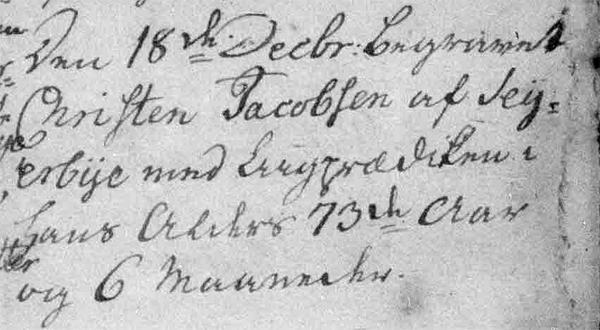 Den 18de Decbr: Begravet
Christen Jacobsen af Sey=
erbye med Liigprædiken i
hans Alders 73de Aar
og 6 Maaneder.